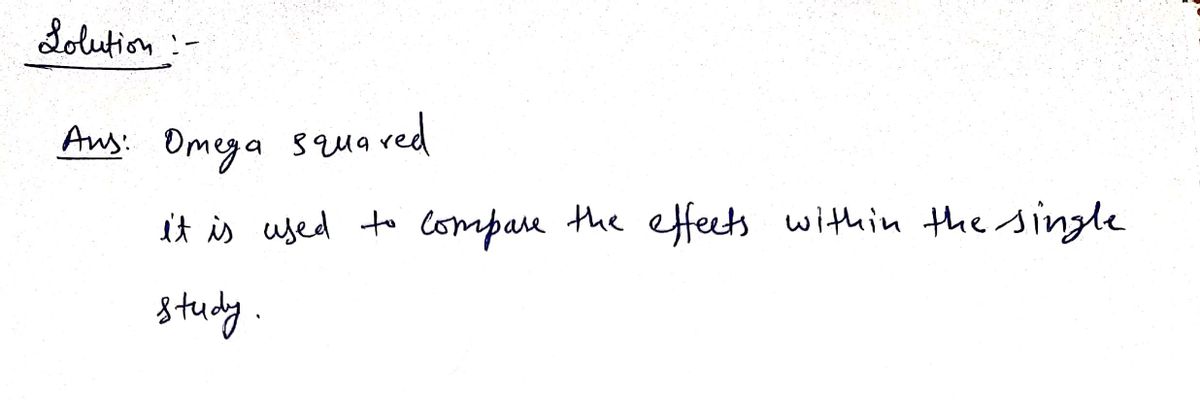 Solution :-
Ans: Omega squared
it is used to compare the effects within the single
study.